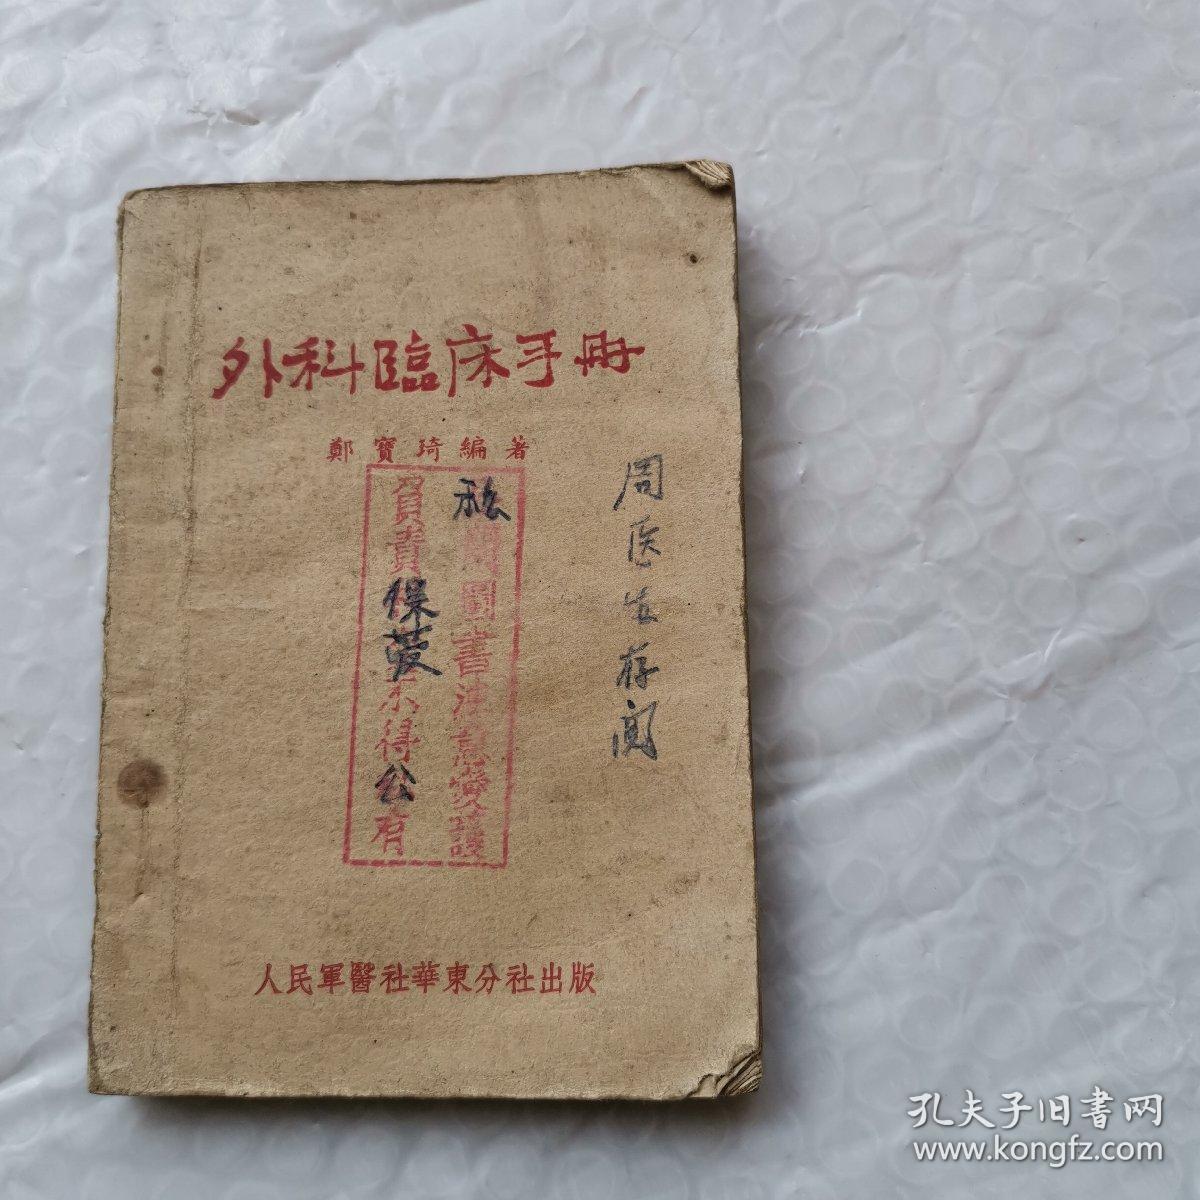 外科臨床手册
鄭寶琦編著
私圖書注意愛護
負責保蔆不得公有
周医生存阅
人民軍醫社華東分社出版
孔夫子旧书网
www.kongfz.com